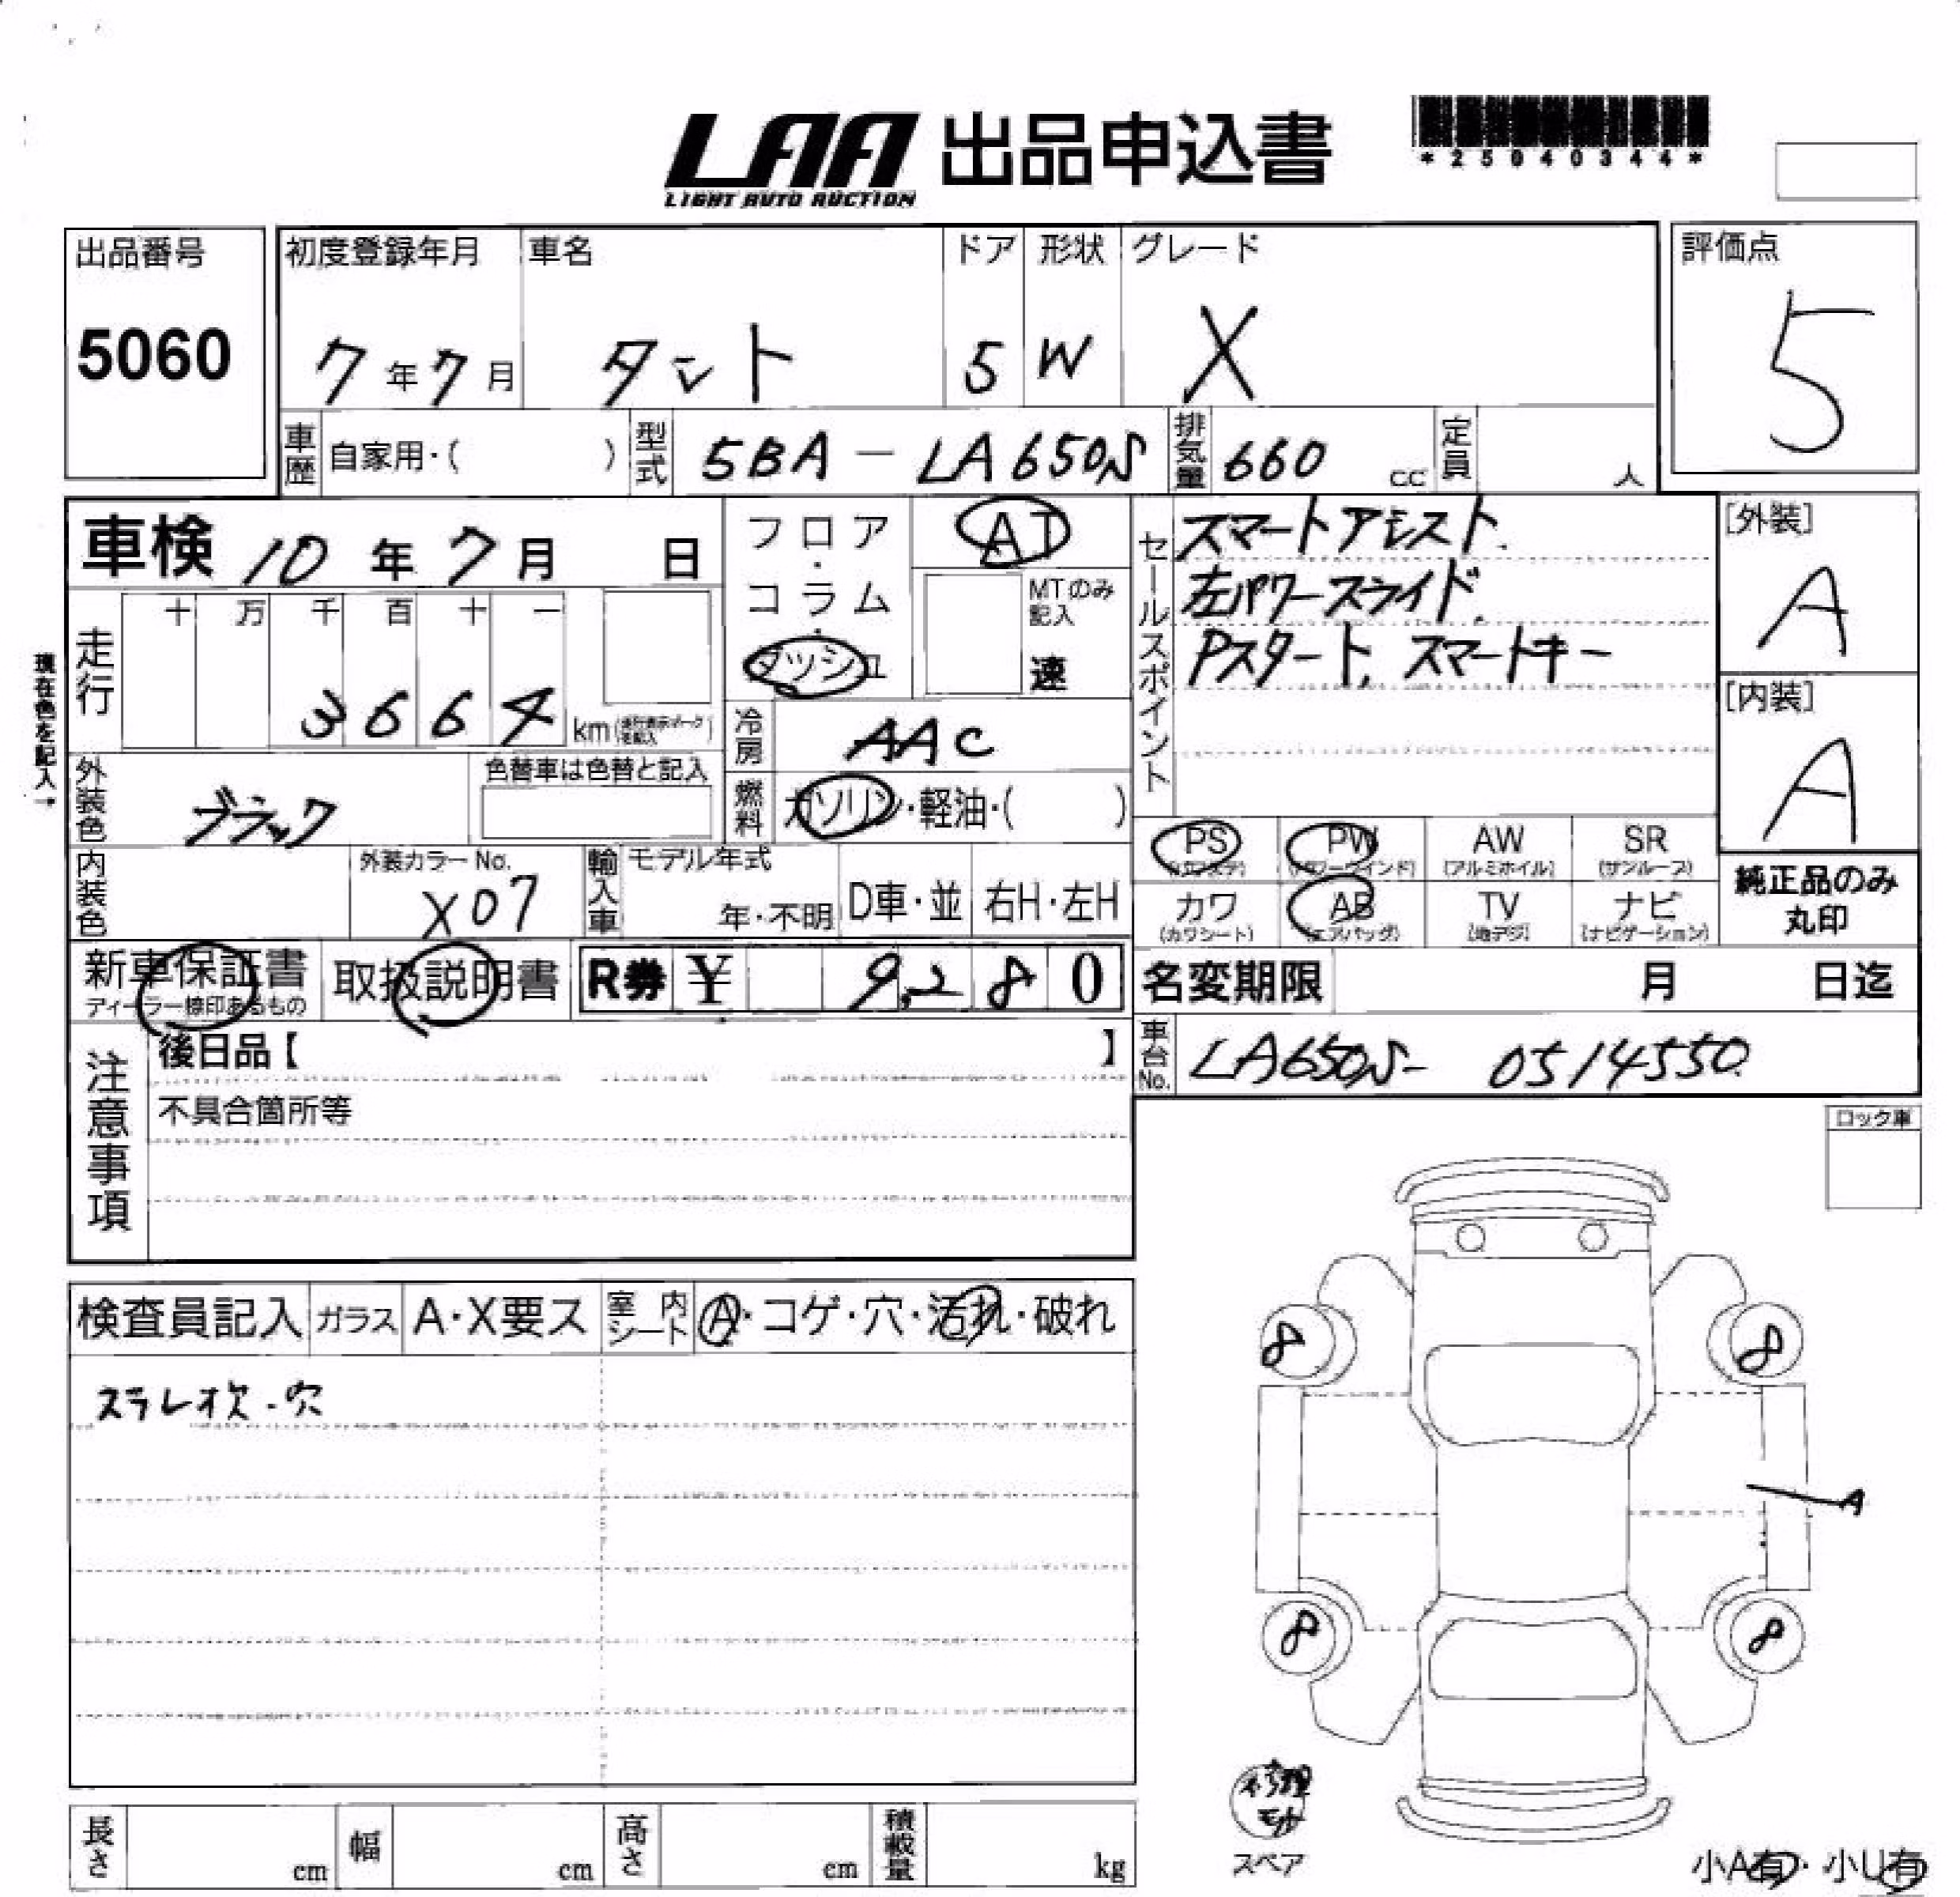 LAA 出品申込書
LIGHT AUTO AUCTION
*25040344*
出品番号 5060
初度登録年月 7年7月
車名 タント
ドア 5
形状 W
グレード X
評価点 5
車歴 自家用・( )
型式 5BA-LA650S
排気量 660 cc
定員 人
車検 10年7月 日
フロア・コラム・ダッシュ
AT
MTのみ記入 速
セールスポイント
スマートアシスト.
左パワースライド.
Pスタート. スマートキー
[外装] A
[内装] A
現在色を記入→
走行 十 万 千 百 十 一
3664 km
冷房 AAC
外装色 ブラック
色替車は色替と記入
燃料 ガソリン・軽油・( )
内装色
外装カラーNo. X07
輸入車 モデル年式 年・不明 D車・並 右H・左H
PS PW (パワーウインド) AW (アルミホイル) SR (サンルーフ)
カワ (カワシート) AB (エアバッグ) TV (地デジ) ナビ (ナビゲーション)
純正品のみ丸印
新車保証書 ディーラー捺印あるもの
取扱説明書
R券 ¥ 9,280
名変期限 月 日迄
注意事項
後日品【 】
不具合箇所等
車台No. LA650S- 0514550
ロック車
検査員記入 ガラス A・X要ス 室内シート A・コゲ・穴・汚れ・破れ
ステレオ欠・穴
8 8
A
8 8
修理
スペア
小A有・小U有
長さ cm 幅 cm 高さ cm 積載量 kg